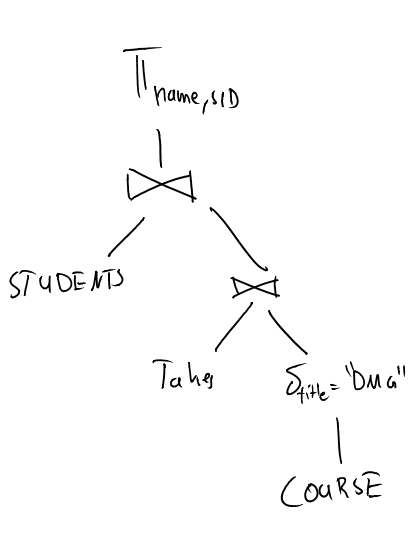 π name, SID
⋈
STUDENTS
⋈
Takes
σ title = "DMA"
COURSE